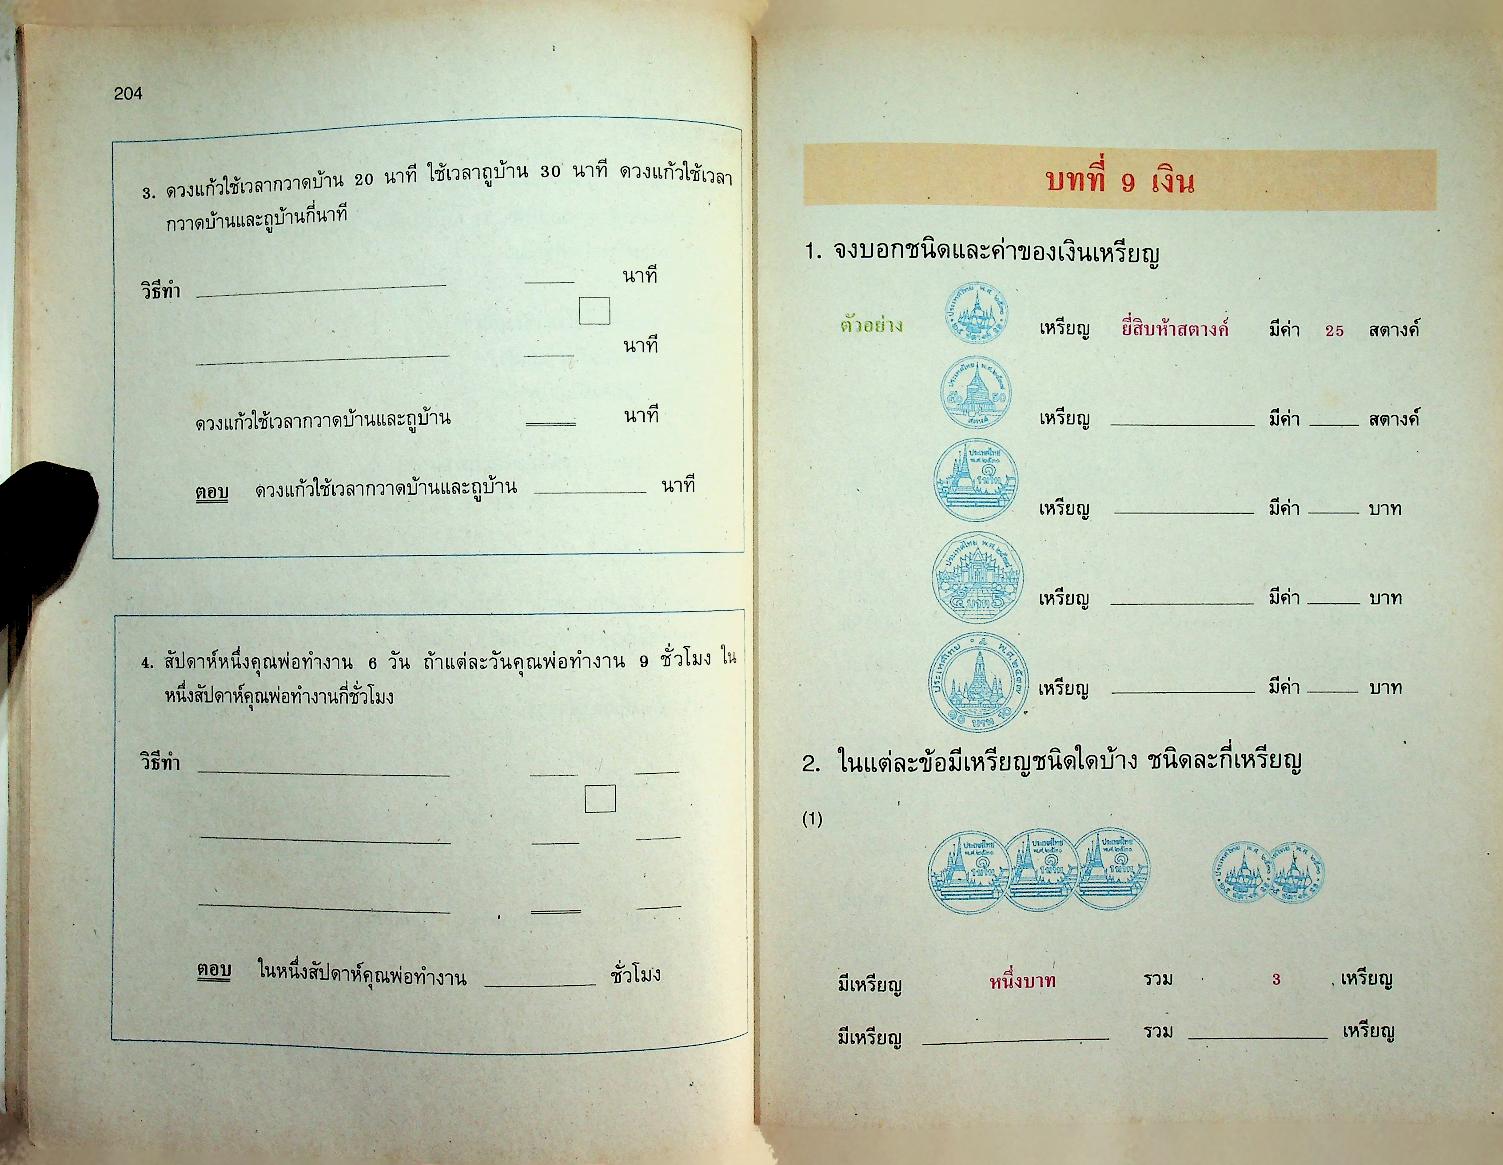 204
3. ดวงแก้วใช้เวลากวาดบ้าน 20 นาที ใช้เวลาถูบ้าน 30 นาที ดวงแก้วใช้เวลา
กวาดบ้านและถูบ้านกี่นาที
วิธีทำ นาที
นาที
ดวงแก้วใช้เวลากวาดบ้านและถูบ้าน นาที
ตอบ ดวงแก้วใช้เวลากวาดบ้านและถูบ้าน นาที
4. สัปดาห์หนึ่งคุณพ่อทำงาน 6 วัน ถ้าแต่ละวันคุณพ่อทำงาน 9 ชั่วโมง ใน
หนึ่งสัปดาห์คุณพ่อทำงานกี่ชั่วโมง
วิธีทำ
ตอบ ในหนึ่งสัปดาห์คุณพ่อทำงาน ชั่วโมง
บทที่ 9 เงิน
1. จงบอกชนิดและค่าของเงินเหรียญ
ตัวอย่าง เหรียญ ยี่สิบห้าสตางค์ มีค่า 25 สตางค์
เหรียญ มีค่า สตางค์
เหรียญ มีค่า บาท
เหรียญ มีค่า บาท
เหรียญ มีค่า บาท
2. ในแต่ละข้อมีเหรียญชนิดใดบ้าง ชนิดละกี่เหรียญ
(1)
มีเหรียญ หนึ่งบาท รวม 3 เหรียญ
มีเหรียญ รวม เหรียญ